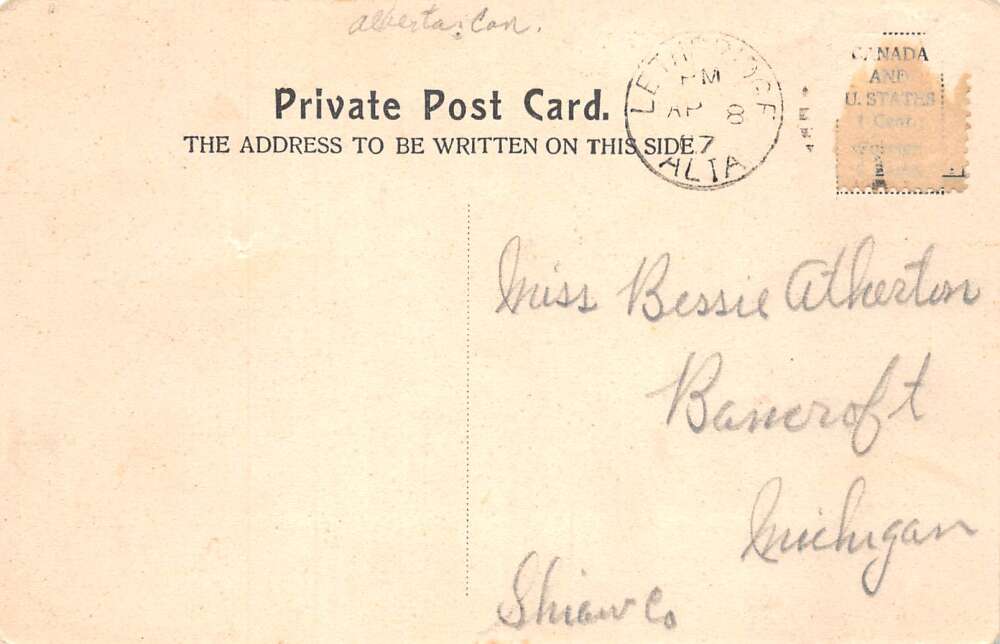 Alberta, Can.
Private Post Card.
THE ADDRESS TO BE WRITTEN ON THIS SIDE
LETHBRIDGE
PM
AP 8
07
ALTA
CANADA
AND
U. STATES
1 Cent
Miss Bessie Atherton
Bancroft
Michigan
Shiaw Co